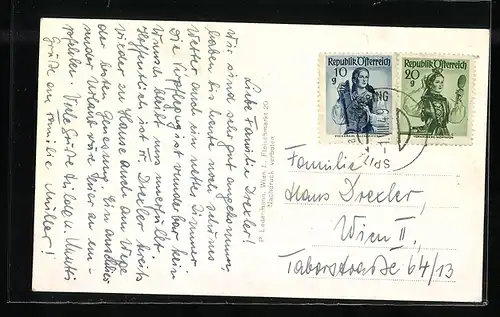 Liebe Familie Drexler!
Wir sind sehr gut angekommen,
haben bis heute noch schönes
Wetter auch ein nettes Zimmer
Die Verpflegung ist wunderbar kein
Wunsch bleibt uns unerfüllt.
Hoffentlich ist Fr. Drexler bereits
wieder zu Hause auch am Wege
der besten Genesung. Ein
Urlaub wäre hier an em-
pfehlen. Viele Grüße
Grüße an Familie Müller!
Wien I., Fleischmarkt 20
Nachdruck verboten
Republik Österreich
10
g
Republik Österreich
20
g
Familie
Hans Drexler,
Wien II.,
Taborstraße 64/13